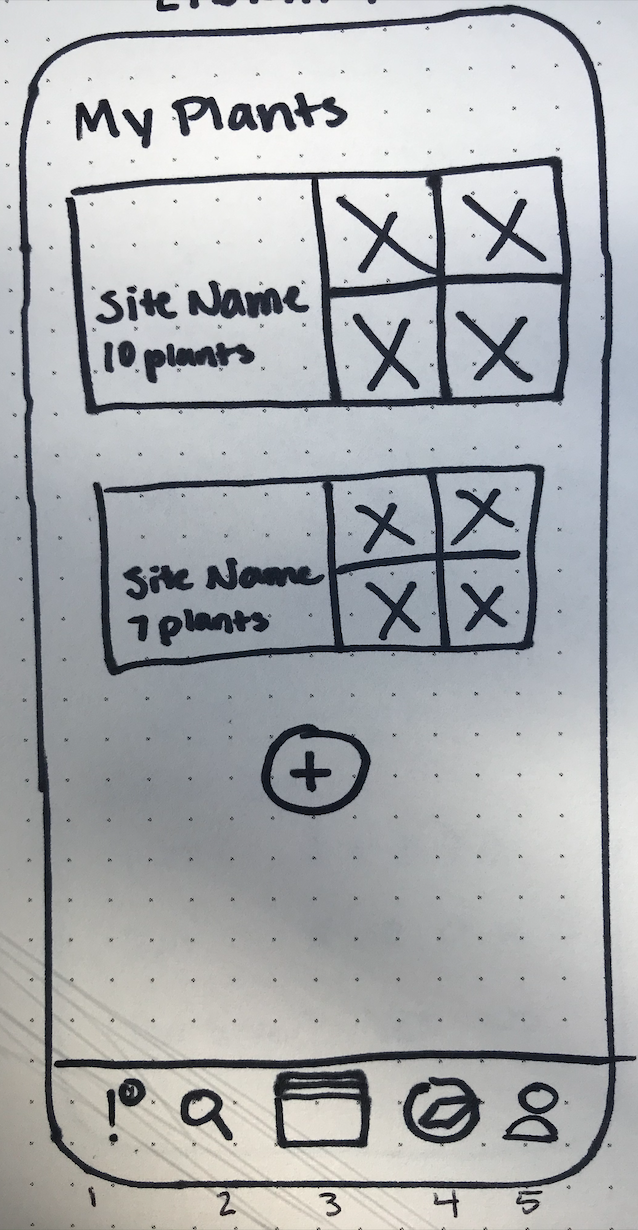 My Plants
Site Name
10 plants
Site Name
7 plants
+
!
1 2 3 4 5